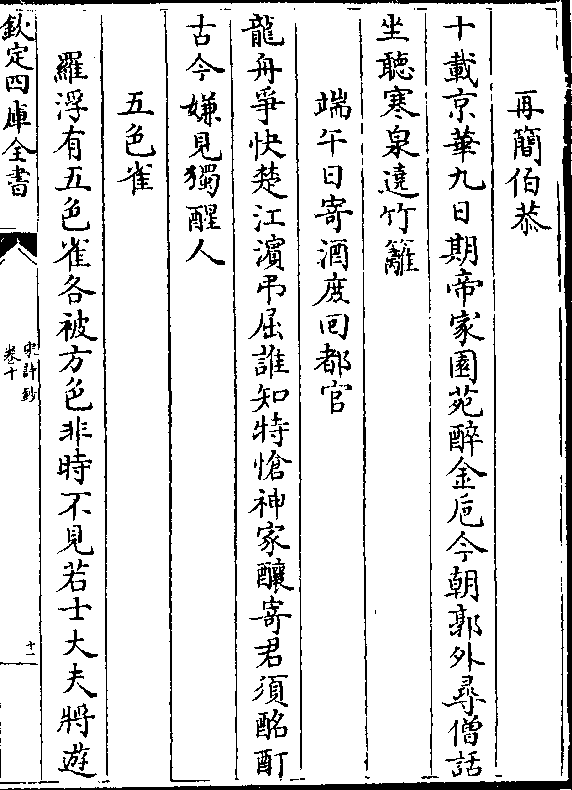 再簡伯恭
十載京華九日期帝家園苑醉金巵今朝郭外尋僧話
坐聽寒泉遶竹籬
端午日寄酒庹回都官
龍舟爭快楚江濱弔屈誰知特愴神家釀寄君須酩酊
古今嫌見獨醒人
五色雀
羅浮有五色雀各被方色非時不見若士大夫將遊
欽定四庫全書
宋詩鈔
卷十
十二